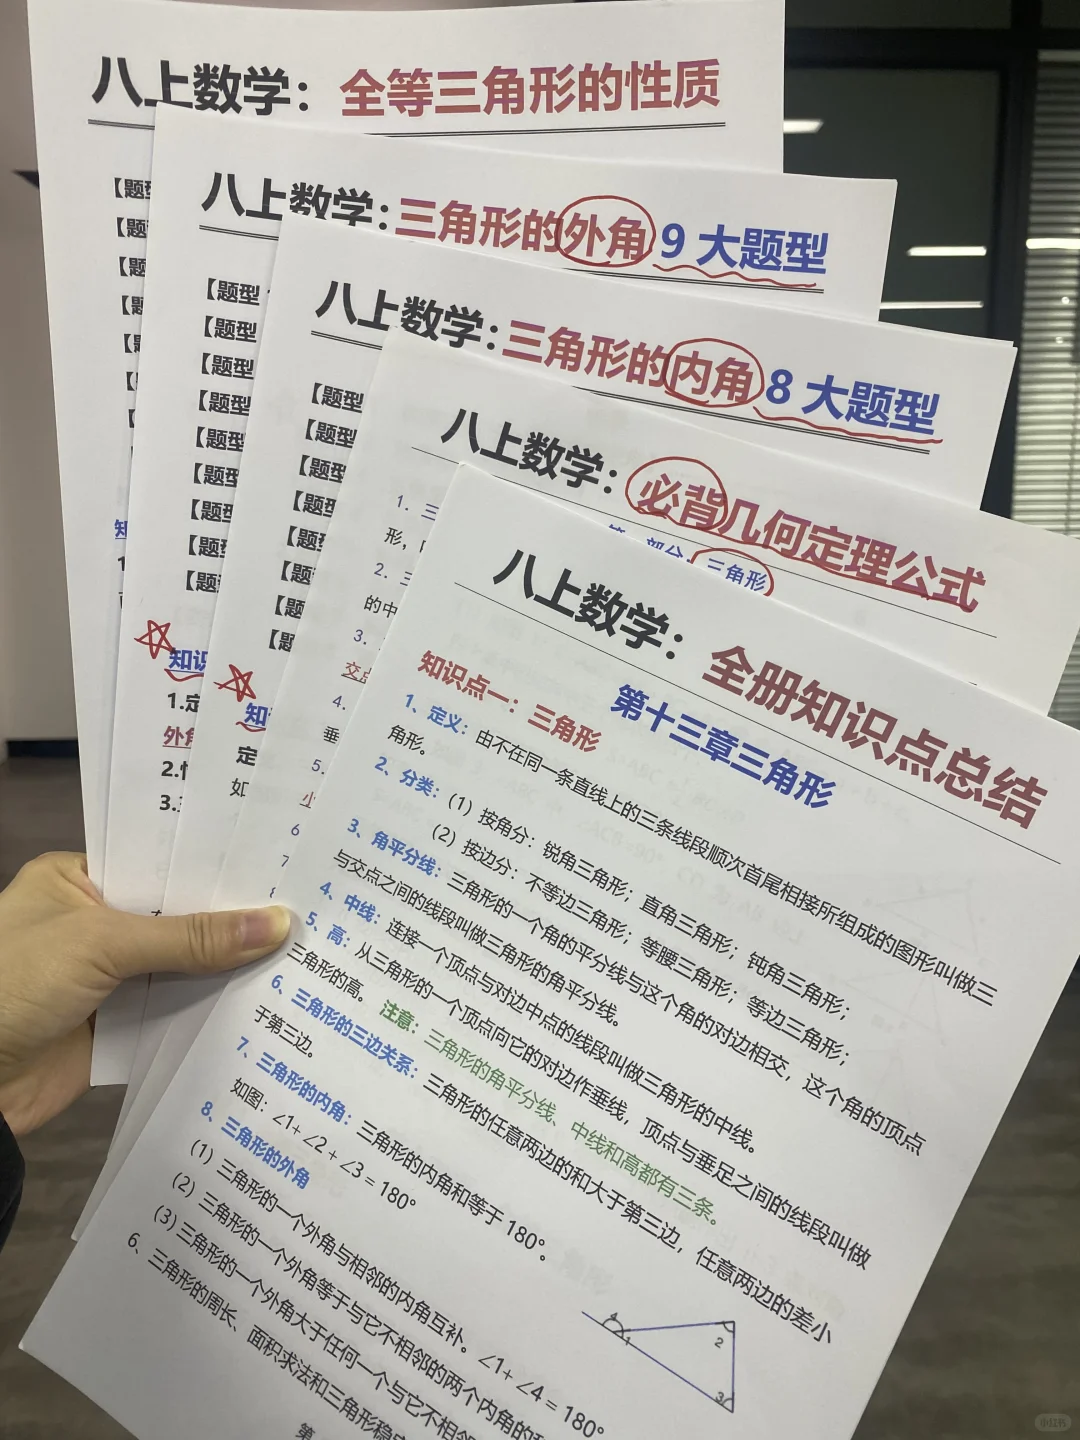 八上数学：全等三角形的性质
【题型
【题
【题
【题
【题
八上数学：三角形的外角 9 大题型
【题型
【题型
【题型
【题型
【题型
【题型
【题型
【题型
【题型
知识
1.定
外角
2.性
3.三
八上数学：三角形的内角 8 大题型
【题型
【题型
【题型
【题型
【题型
【题型
【题型
【题
知
定
如
八上数学：必背几何定理公式
第一部分：三角形
1. 三
形，
2. 三
的中
3.
交点
4.
垂
5.
小
6
7
8
八上数学：全册知识点总结
第十三章三角形
知识点一：三角形
1、定义：由不在同一条直线上的三条线段顺次首尾相接所组成的图形叫做三
角形。
2、分类：（1）按角分：锐角三角形；直角三角形；钝角三角形；
（2）按边分：不等边三角形；等腰三角形；等边三角形；
3、角平分线：三角形的一个角的平分线与这个角的对边相交，这个角的顶点
与交点之间的线段叫做三角形的角平分线。
4、中线：连接一个顶点与对边中点的线段叫做三角形的中线。
5、高：从三角形的一个顶点向它的对边作垂线，顶点与垂足之间的线段叫做
三角形的高。 注意：三角形的角平分线、中线和高都有三条。
6、三角形的三边关系：三角形的任意两边的和大于第三边，任意两边的差小
于第三边。
7、三角形的内角：三角形的内角和等于 180°。
如图：∠1+ ∠2 + ∠3 = 180°
8、三角形的外角
（1）三角形的一个外角与相邻的内角互补。∠1+ ∠4 = 180°
（2）三角形的一个外角等于与它不相邻的两个内角的和
（3）三角形的一个外角大于任何一个与它不相邻
6、三角形的周长、面积求法和三角形稳定
第
4
1
2
3
小红书